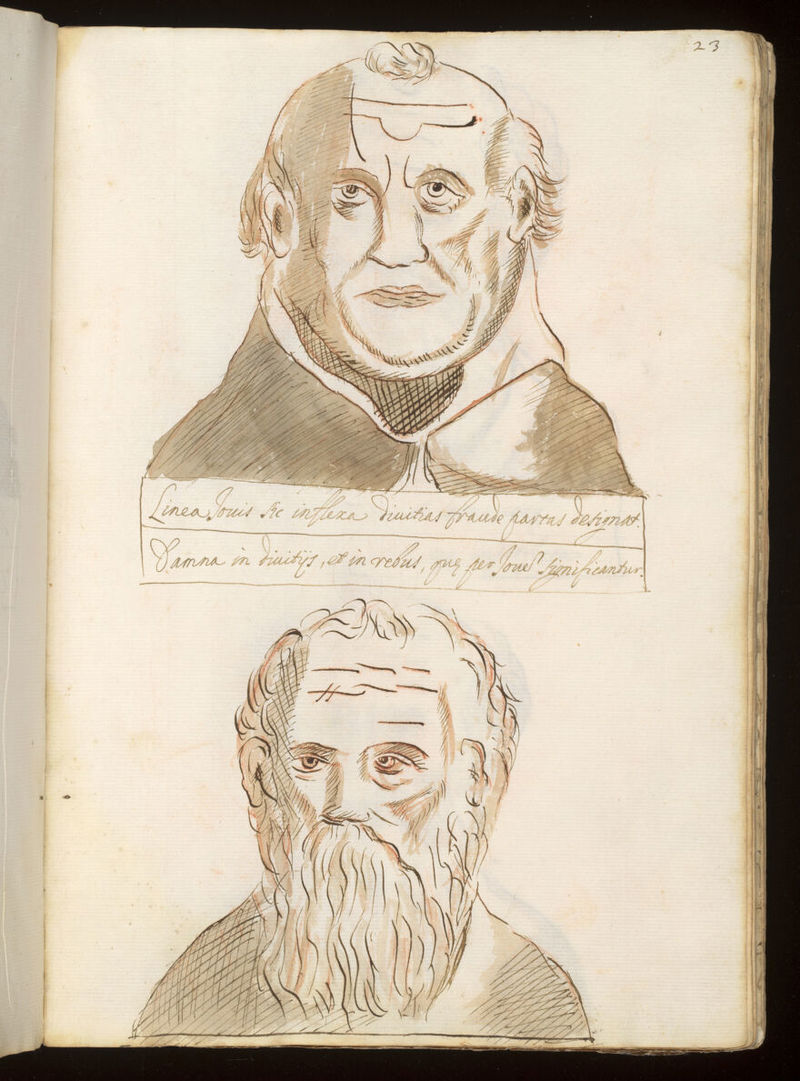 23
Linea Jouis sic inflexa diuitias fraude partas designat.
Damna in diuitijs, et in rebus, quę per Jouē significantur.